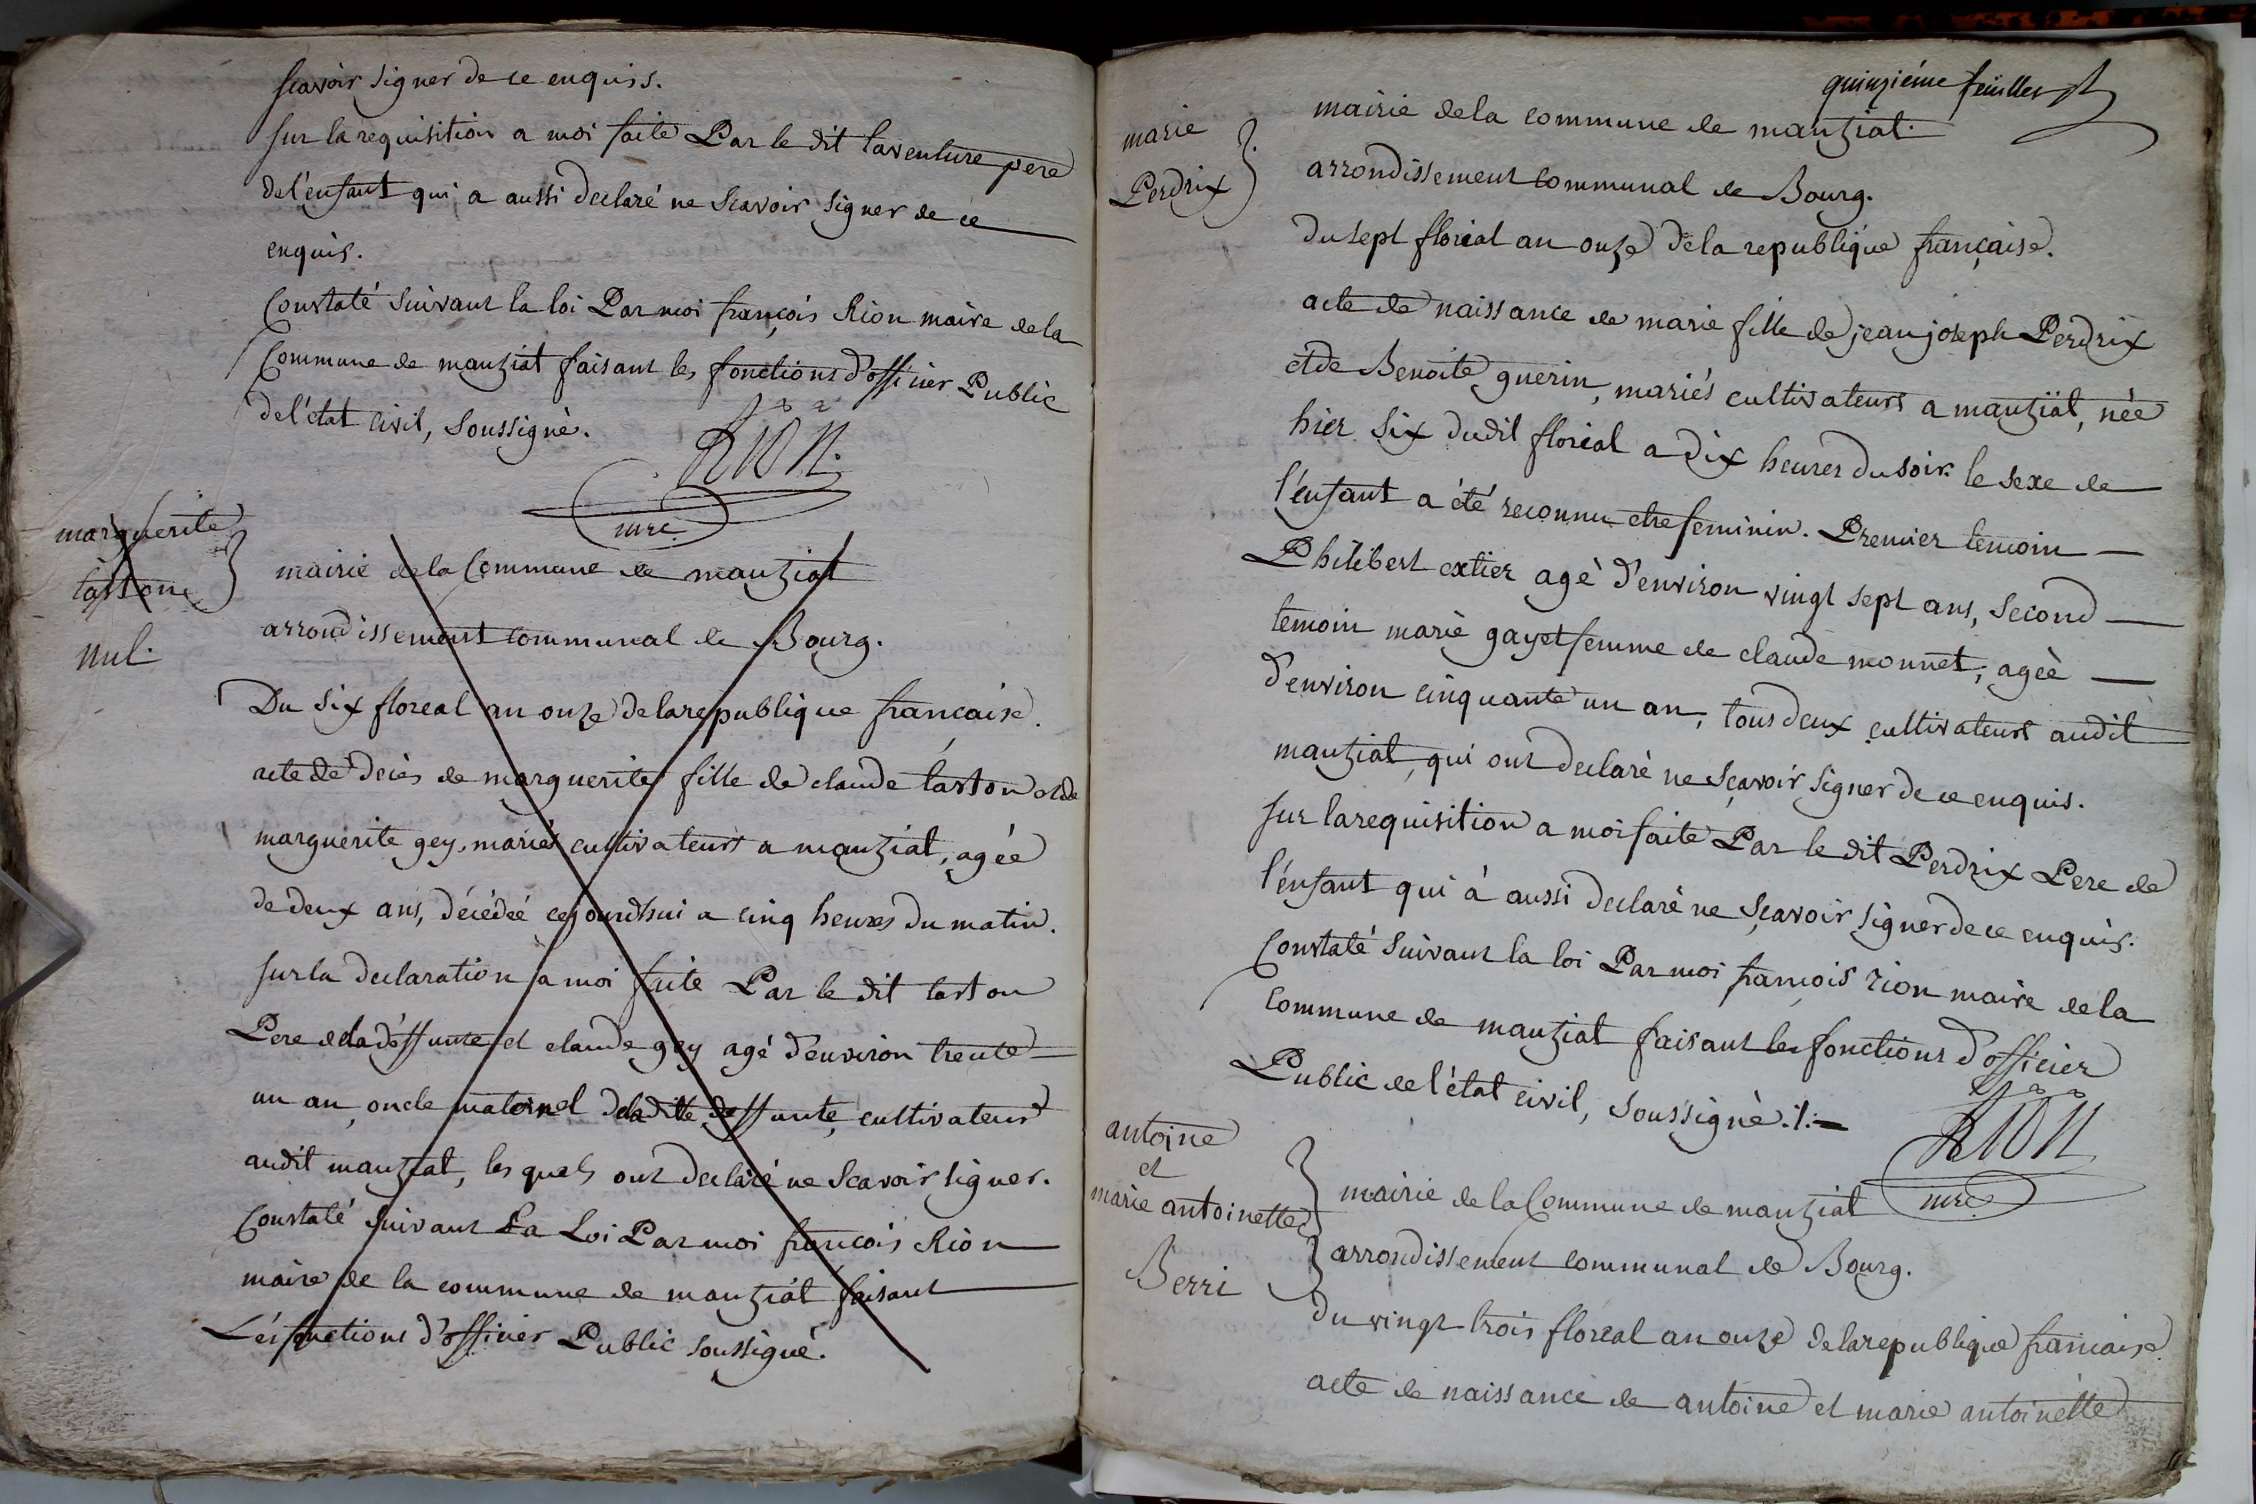 scavoir signer de ce enquiss.
sur la requisition a moi faite Par le dit laventure pere
de l'enfant qui a aussi declaré ne scavoir signer de ce
enquis.
Constaté suivant la loi Par moi françois Rion maire de la
Commune de manziat faisant les fonctions d'officier Public
de l'état civil, soussigné.
RION.
mre.
marguerite
taston
nul.
mairie de la Commune de manziat
arrondissement communal de Bourg.
Du six floreal an onze de la republique francaise.
acte de decès de marguerite fille de claude taston et de
marguerite gey, mariés cultivateurs a manziat, agée
de deux ans, décédée cejourdhui a cinq heures du matin.
sur la declaration a moi faite Par le dit taston
Pere de la deffunte et claude gey agé d'environ trente
un an, oncle maternel de la ditte deffunte, cultivateurs
audit manziat, les quels ont declaré ne scavoir signer.
Constaté suivant La Loi Par moi françois Rion
maire de la commune de manziat faisant
Les fonctions d'officier Public soussigné.
quinziéme feuillet
marie
Perdrix
mairie de la commune de manziat.
arrondissement communal de Bourg.
du sept floréal an onze de la republique française.
acte de naissance de marie fille de jean joseph Perdrix
et de Benoite guerin, mariés cultivateurs a manziat, née
hier six dudit floréal a dix heures du soir. le sexe de
l'enfant a été reconnu etre feminin. Premier temoin
Philibert extier agé d'environ vingt sept ans, second
temoin marie gayet femme de claude monnet, agèe
d'environ cinquante un an, tous deux cultivateurs audit
manziat, qui ont declaré ne sçavoir signer de ce enquis.
sur la requisition a moi faite Par le dit Perdrix Pere de
l'enfant qui à aussi declaré ne sçavoir signer de ce enquis.
Constaté suivant la loi Par moi françois rion maire de la
Commune de manziat faisant les fonctions d'officier
Public de l'état civil, soussigné ./.
RION
mre
antoine
et
marie antoinette
Berri
mairie de la Commune de manziat
arrondissement communal de Bourg.
du vingt trois floréal an onze de la republique francaise.
acte de naissance de antoine et marie antoinette